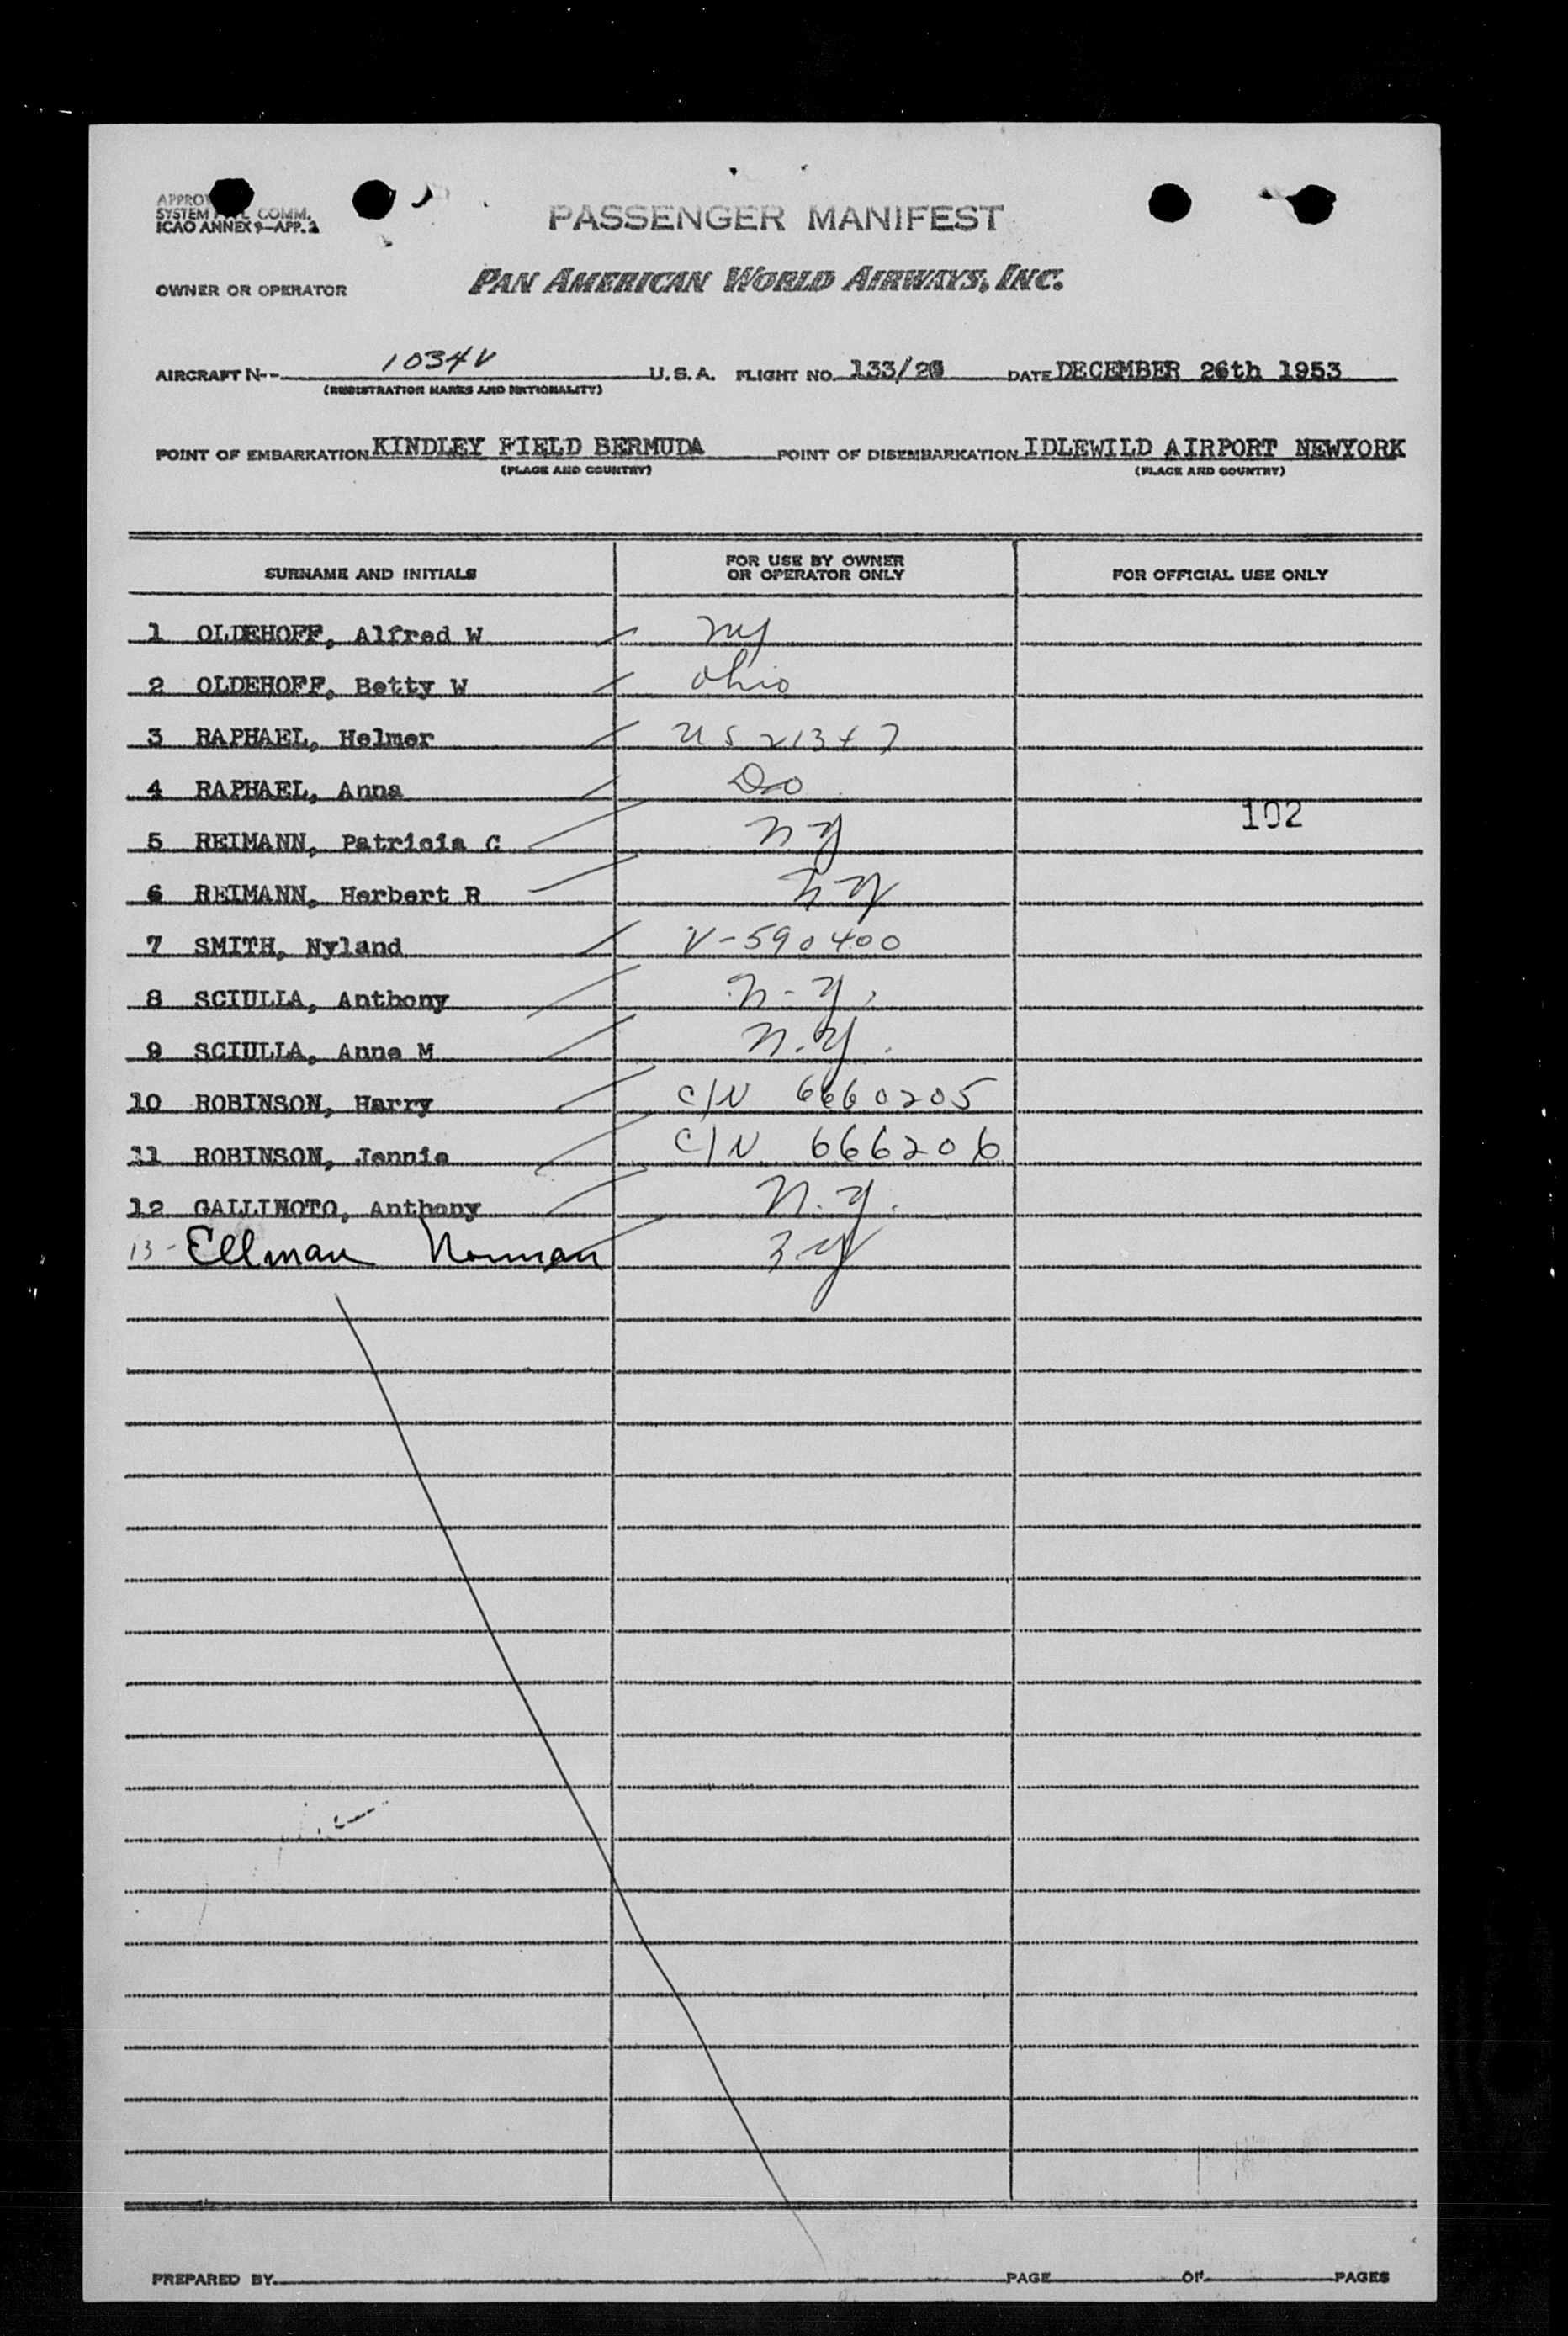 SYSTEM COMM.
ICAO ANNEX 9—APP. 2
PASSENGER MANIFEST
OWNER OR OPERATOR PAN AMERICAN WORLD AIRWAYS, INC.
AIRCRAFT N-- 1034V U.S.A. FLIGHT NO. 133/26 DATE DECEMBER 26th 1953
(REGISTRATION MARKS AND NATIONALITY)
POINT OF EMBARKATION KINDLEY FIELD BERMUDA POINT OF DISEMBARKATION IDLEWILD AIRPORT NEWYORK
(PLACE AND COUNTRY) (PLACE AND COUNTRY)
SURNAME AND INITIALS FOR USE BY OWNER OR OPERATOR ONLY FOR OFFICIAL USE ONLY
1 OLDEHOFF, Alfred W NY
2 OLDEHOFF, Betty W Ohio
3 RAPHAEL, Helmer US 21347
4 RAPHAEL, Anna Do
102
5 REIMANN, Patricia C N Y
6 REIMANN, Herbert R N Y
7 SMITH, Nyland V-590400
8 SCIULLA, Anthony N-Y.
9 SCIULLA, Anne M N.Y.
10 ROBINSON, Harry C/N 6660205
11 ROBINSON, Jennie C/N 666206
12 GALLINOTO, Anthony N.Y.
13- Ellman Norman
PREPARED BY PAGE OF PAGES